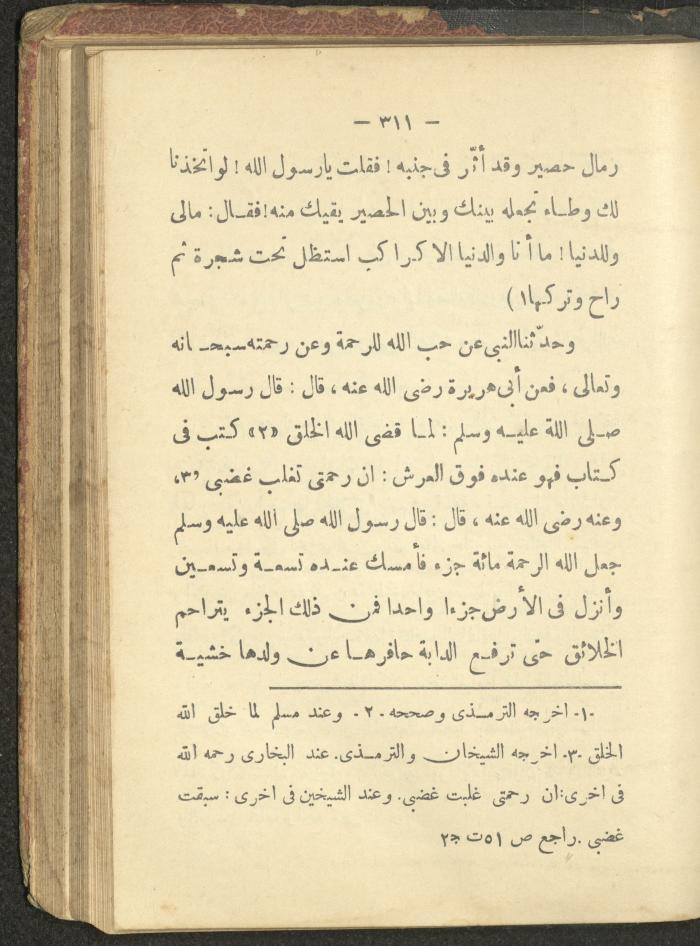 – ٣١١ –
رمال حصير وقد أثّر فى جنبه ! فقلت يارسول الله ! لو اتخذنا
لك وطاء تجعله بينك وبين الحصير يقيك منه! فقال : مالى
وللدنيا ! ما أنا والدنيا الا كراكب استظل تحت شجرة ثم
راح وتركها١)
وحدّثنا النبى عن حب الله للرحمة وعن رحمته سبحانه
وتعالى ، فعن أبى هريرة رضى الله عنه ، قال : قال رسول الله
صلى اللة عليه وسلم : لما قضى الله الخلق «٢» كتب فى
كتاب فهو عنده فوق العرش : ان رحمتى تغلب غضبى «٣»
وعنه رضى الله عنه ، قال : قال رسول الله صلى الله عليه وسلم
جعل الله الرحمة مائة جزء فأمسك عنده تسعة وتسعين
وأنزل فى الأرض جزءا واحدا فمن ذلك الجزء يتراحم
الخلائق حتى ترفع الدابة حافرها عن ولدها خشية
-١- اخرجه الترمذى وصححه -٢- وعند مسلم لما خلق الله
الخلق -٣- اخرجه الشيخان والترمذى. عند البخارى رحمه الله
فى اخرى: ان رحمتى غلبت غضبي. وعند الشيخين فى اخرى : سبقت
غضبي . راجع ص ٥١ت ج٢